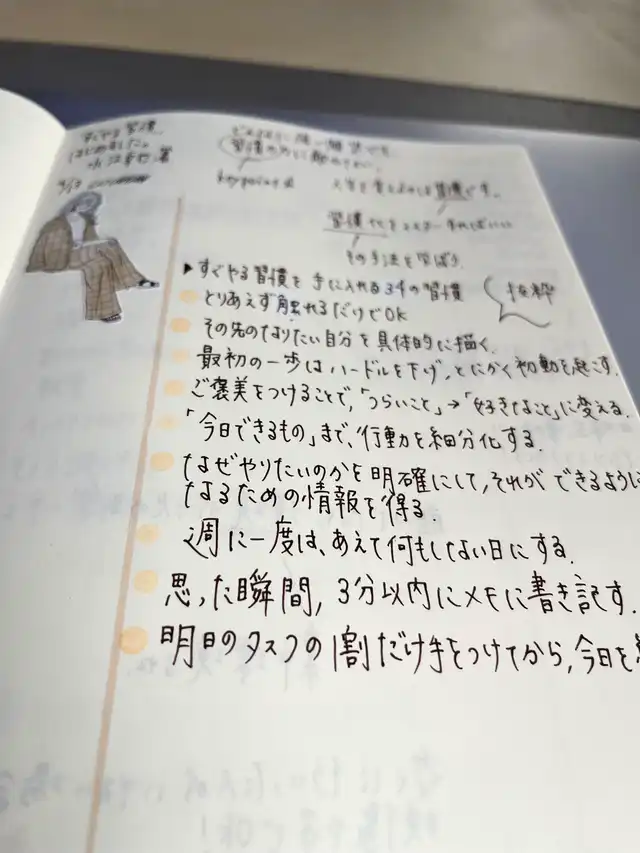 すぐやる習慣、
はじめました。
keypoint
習慣化をマスターすればいい
その手法を学ぼう。
▶すぐやる習慣を手に入れる34の習慣
抜粋
とりあえず触れるだけでOK
その先のなりたい自分を具体的に描く。
最初の一歩はハードルを下げ、とにかく初動を起こす。
ご褒美をつけることで、「つらいこと」→「好きなこと」に変える。
「今日できるもの」まで、行動を細分化する。
なぜやりたいのかを明確にして、それができるように
なるための情報を得る。
週に一度は、あえて何もしない日にする。
思った瞬間、3分以内にメモに書き記す。
明日のタスクの1割だけ手をつけてから、今日を